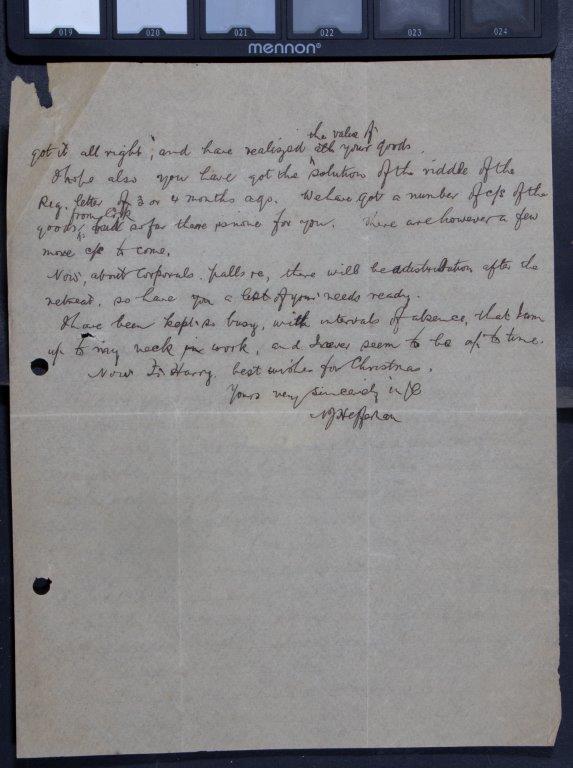 019 020 021 022 023 024
mennon®
the value of
got it all right, and have realized your goods.
I hope also you have got the solution of the riddle of the
Reg. letter of 3 or 4 months ago. We have got a number of c/s of the
from
goods, so far there is none for you. There are however a few
more c/s to come.
Now, about Corporals, palls etc, there will be a distribution after the
retreat, so have you a list of your needs ready.
I have been kept so busy, with intervals of absence, that I am
up to my neck in work, and never seem to be up to time.
Now Fr Harry, best wishes for Christmas.
Yours very sincerely in JC
NJ Heffernan